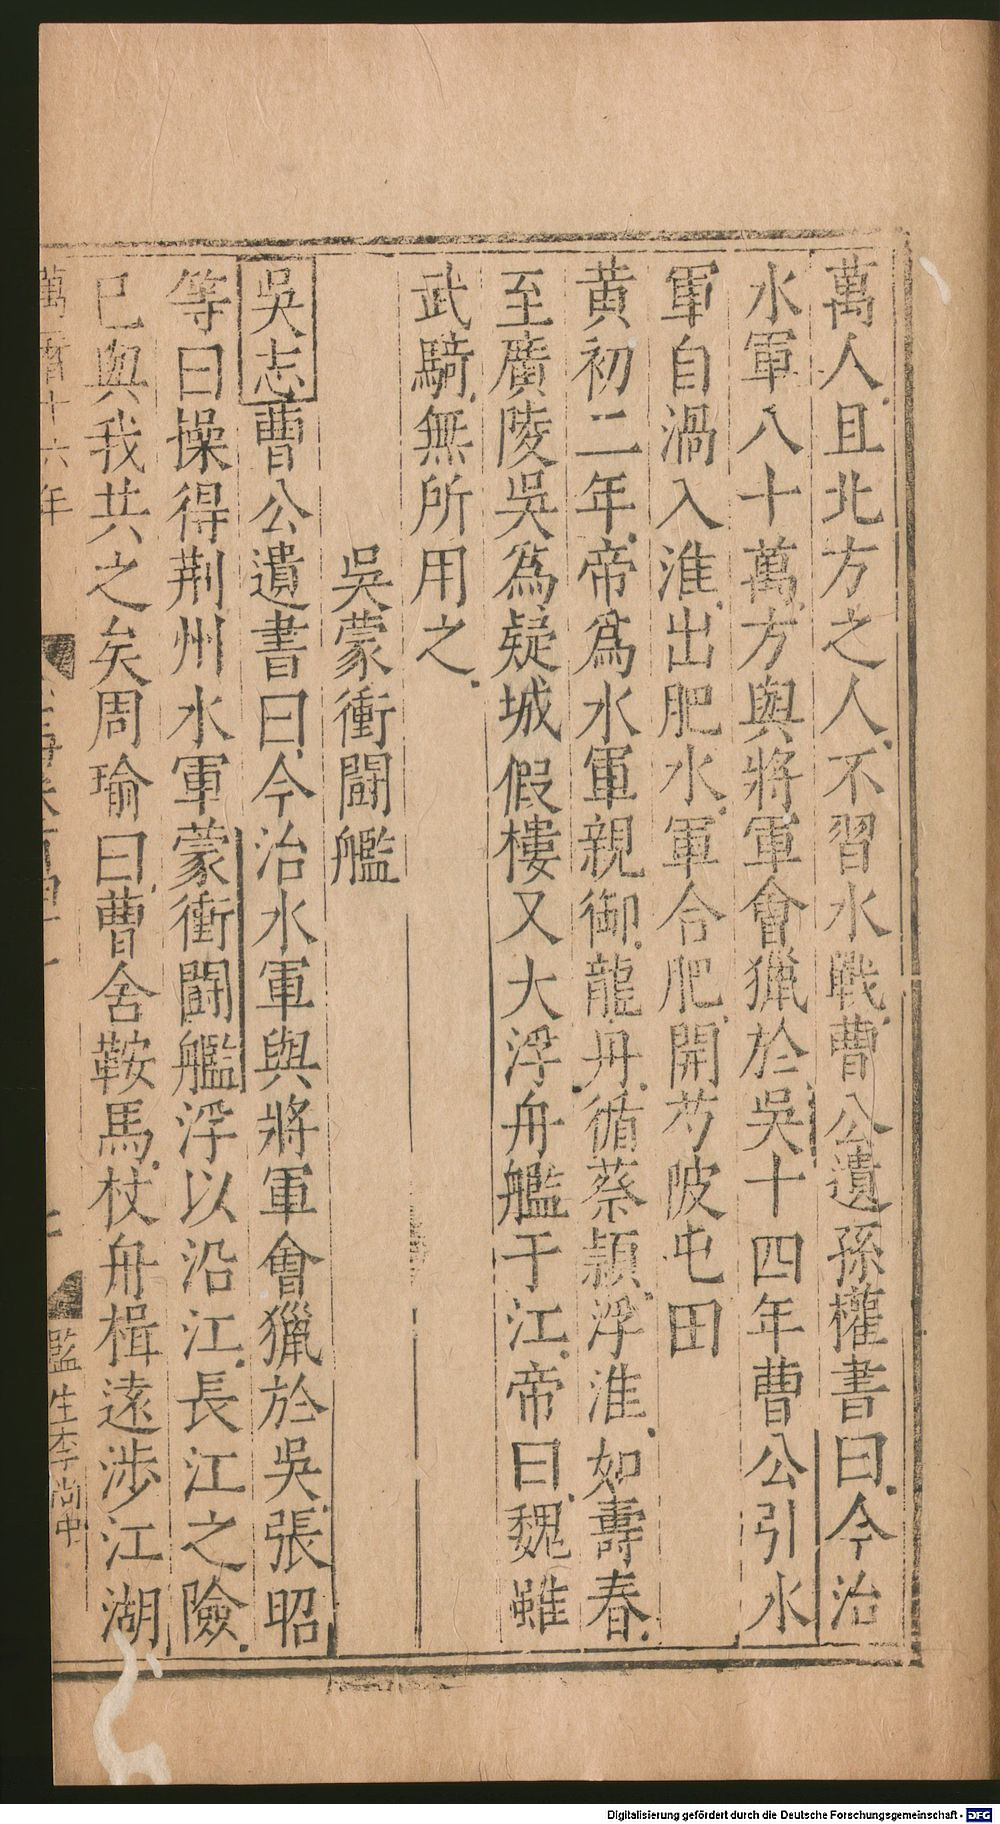 萬人且北方之人不習水戰曹公遺孫權書曰今治
水軍八十萬方與將軍會獵於吳十四年曹公引水
軍自渦入淮出肥水軍合肥開芍陂屯田
黃初二年帝爲水軍親御龍舟循蔡潁浮淮如壽春
至廣陵吳爲疑城假樓又大浮舟艦于江帝曰魏雖
武騎無所用之
吳蒙衝鬪艦
吳志曹公遺書曰今治水軍與將軍會獵於吳張昭
等曰操得荆州水軍蒙衝鬪艦浮以沿江長江之險
已與我共之矣周瑜曰曹舍鞍馬杖舟楫遠涉江湖
萬曆十六年
監生李尚中
Digitalisierung gefördert durch die Deutsche Forschungsgemeinschaft - DFG